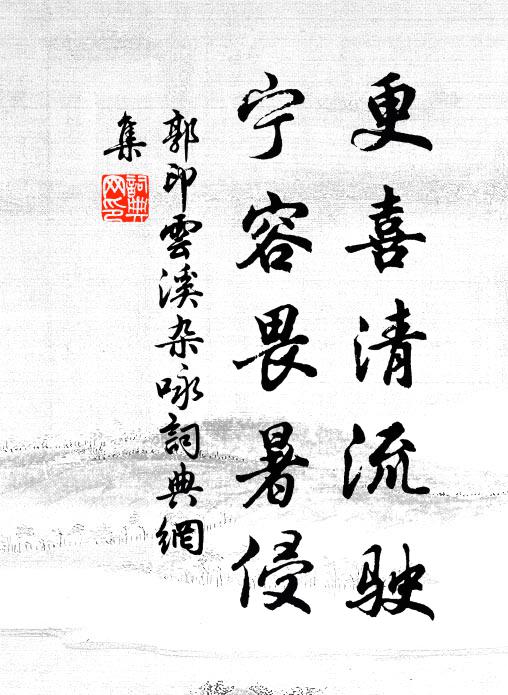 更喜清流駛
宁容畏暑侵
郭印雲溪杂咏詞典網
集
詞典
网印